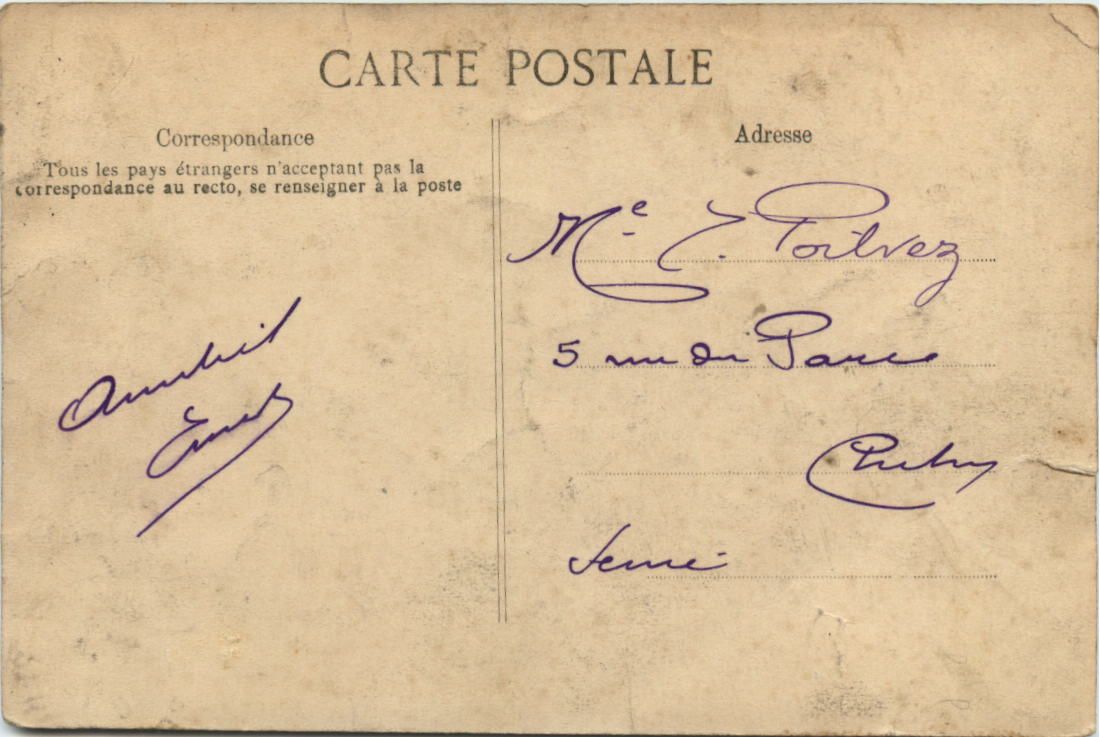 CARTE POSTALE
Correspondance
Tous les pays étrangers n'acceptant pas la
correspondance au recto, se renseigner à la poste
Adresse
Me. Poilvez
5 rue du Parc
Seine